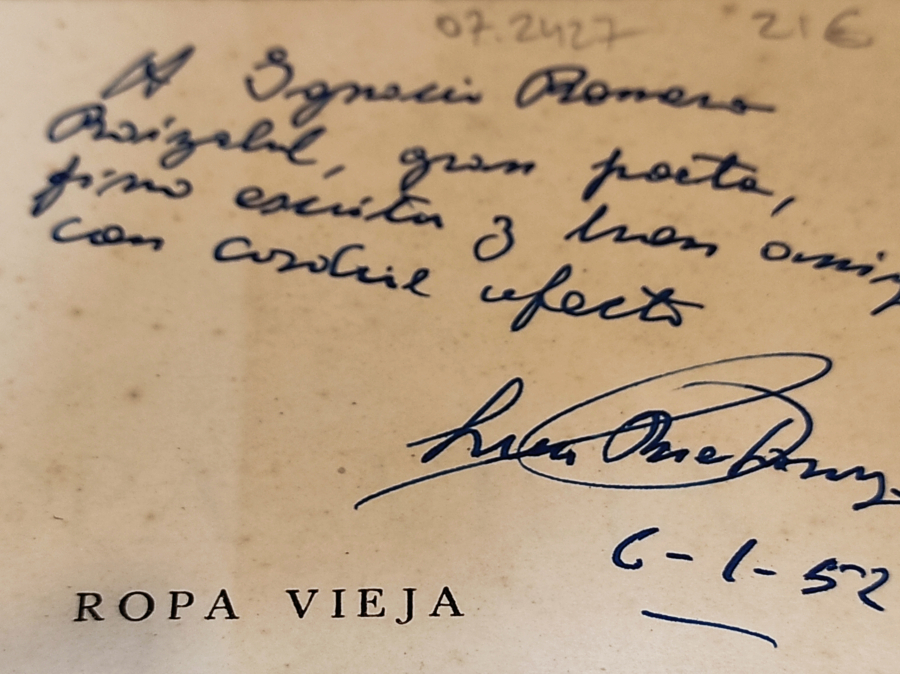 07.2427 21€
A Ignacio Romero
Raizabal, gran poeta,
fino escritor y buen amig
con cordial afecto
6-1-52
ROPA VIEJA